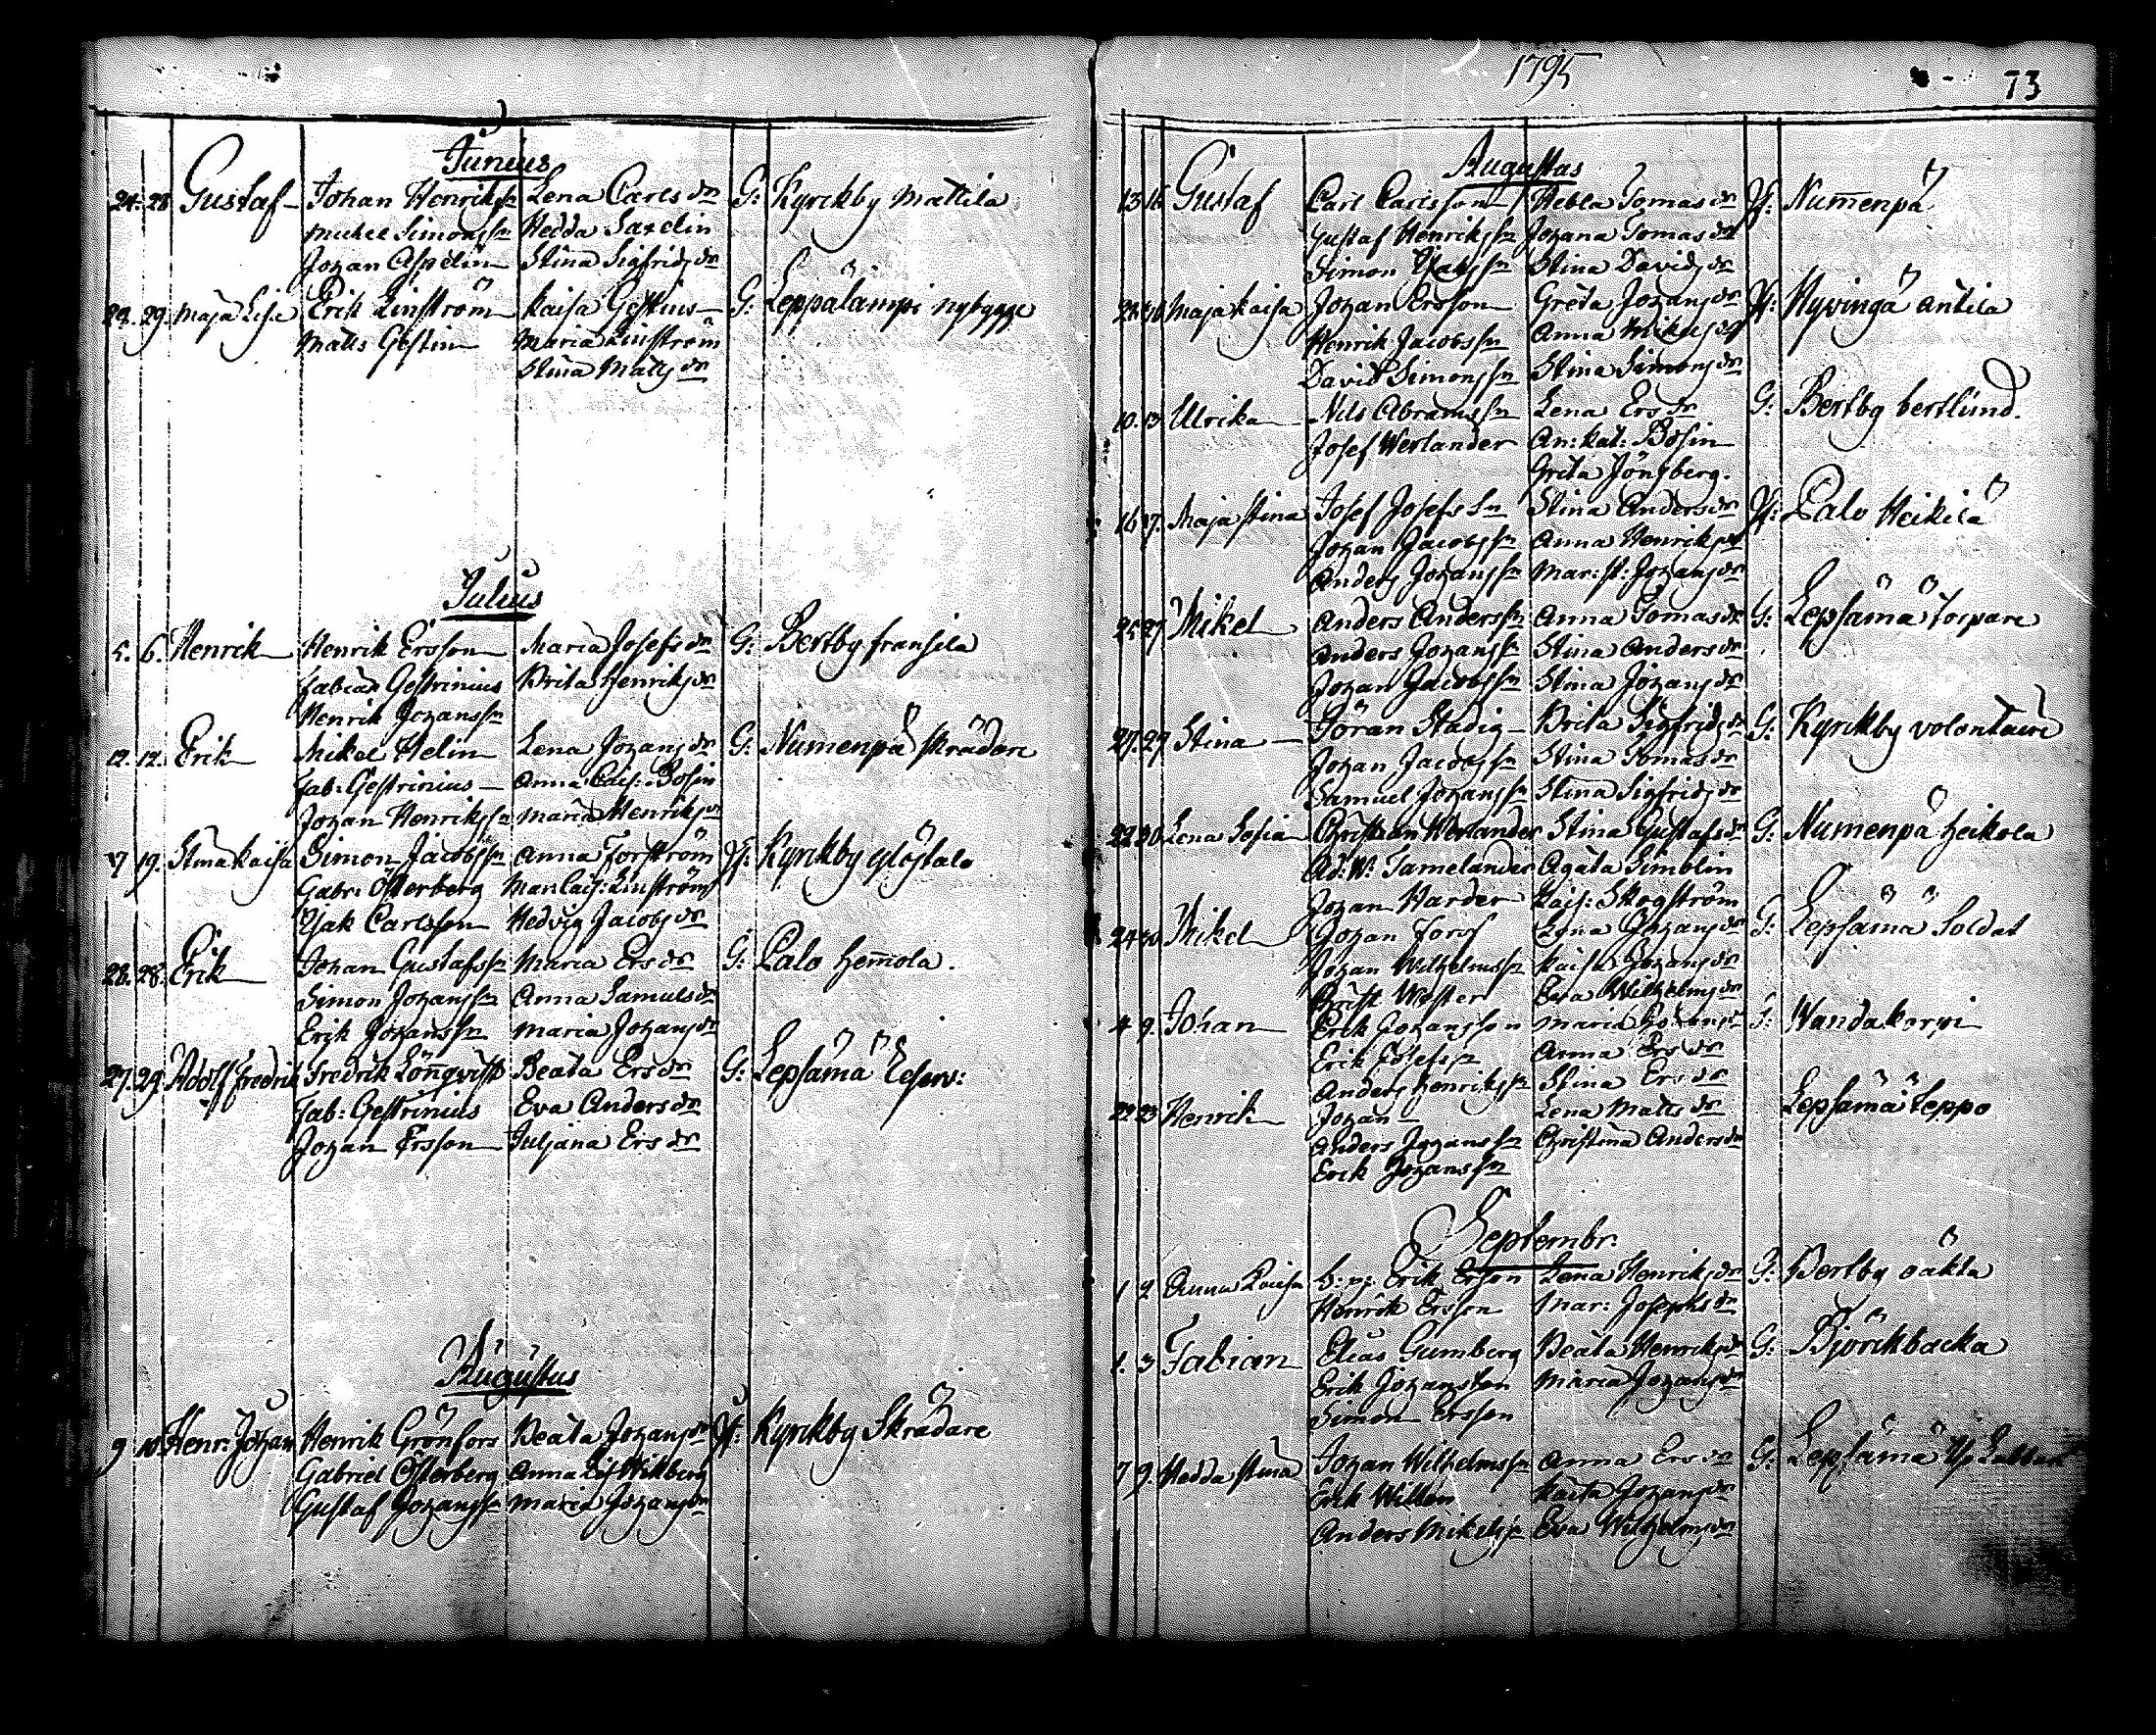 Junius
24. 28. Gustaf Johan Henrikssn Lena Carlsdr G: Kyrckby Mattila
Mickel Simonssn Hedda Saxelin
Johan Aspelin Stina Sigfridsdr
28. 29. Maja Lisa Erik Linström Kaisa Gestrius G: Leppalampi nybygge
Matts Gestrin Maria Linström
Stina Mattsdr
Julius
5. 6. Henrik Henrik Ersson Maria Josefsdr G: Bertby fransila
Fabian Gestrinius Brita Henriksdr
Henrik Johanssn
12. 12. Erik Mikel Helin Lena Johansdr G: Numenpä skrädare
Fab: Gestrinius Anna Caijs: Bosin
Johan Henrikssn Maria Henriksdr
17 19. Stina Kaisa Simon Jacobssn Anna Forström Kyrkby
Gabr: Österberg Linström
Isak Carlsson Hedvig Jacobsdr
28. 28. Erik Johan Gustafssn Maria Ersdr G: Palo Hem̄ola.
Simon Johanssn Anna Samulsdr
Erik Johanssn Maria Johansdr
27. 29. Adolf Fredrik Fredrik Lönnqvist Beata Ersdr G: Lepsämä
Fab: Gestrinius Eva Andersdr
Johan Ersson Juljana Ersdr
Augustus
9 10 Henr: Johan Henrik Grönfors Beata Johansdr Kyrikby Skrädare
Gabriel Österberg Anna Lis Wikberg
Gustaf Johanssn Maria Johansdr
1795
73
Augustus
13 16 Gustaf Carl Carlsson Hebla Tomasdr Num̄enpä
Gustaf Henrikssn Johana Tomasdr
Simon Isakssn Stina Davidsdr
Maja Kaisa Johan Ersson Greta Johansdr Hyvingä Antila
Henrik Jacobssn Anna Mikelsdr
David Simonssn Stina Simonsdr
10. 13 Ulrika Nils Abramssn Lena Ersdr G: Bertby bertlund.
Josef Werlander An: Kat: Bosin
Greta Jönsberg.
16 17. Maja Stina Josef Josefssn Stina Andersdr Palo Heikilä
Johan Jacobssn Anna Henriksdr
Anders Johanssn Mar: st: Johansdr
25 27 Mikel Anders Anderssn Anna Tomasdr G: Lepsämä torpare
Anders Johanssn Stina Andersdr
Johan Jacobssn Stina Johansdr
27. 29 Stina Göran Stadig Brita Sigfridsdr G: Kyrkby volontair
Johan Jacobssn Stina Tomasdr
Samuel Johanssn Stina Sigfridsdr
22 30 Lena Sofia Christian Werlander Stina Gustafsdr G: Numenpä Heikola
Ad: W: Tamelander Agata Simblin
Johan Harder Kais: Skogström
24 30 Mikel Johan Forss Lena Johansdr G: Lepsämä Soldat
Johan Wilhelmssn Kaisa Johansdr
Wester Eva Wilhelmsdr
4 9. Johan Erik Johansson Maria Johansdr G: Wandakorpi
Erik Josefssn Anna Ersdr
Anders Henrikssn Stina Ersdr
22 23 Henrik Johan Lena Mattsdr Lepsämä teppo
Anders Johanssn Christina Andersdr
Erik Johanssn
Septembr:
1 2 Anna Kaisa Erik Erson Lena Henriksdr G: Bertby oäkta
Henrik Ersson Mar: Josephsdr
1. 3 Fabian Elias Gumberg Beata Henriksdr G: Björikbacka
Erik Johansson Maria Johansdr
Simon Ersson
7 9. Hedda Stina Johan Wilhelmssn Anna Ersdr G: Lepsämä
Erik Willen Kaisa Johansdr
Anders Mikelssn Eva Wilhelmsdr